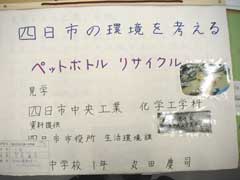 四日市の環境を考える
ペットボトル リサイクル
見学
四日市中央工業 化学工学科
資料提供
四日市市役所 生活環境課
中学校1年 丸田慶司